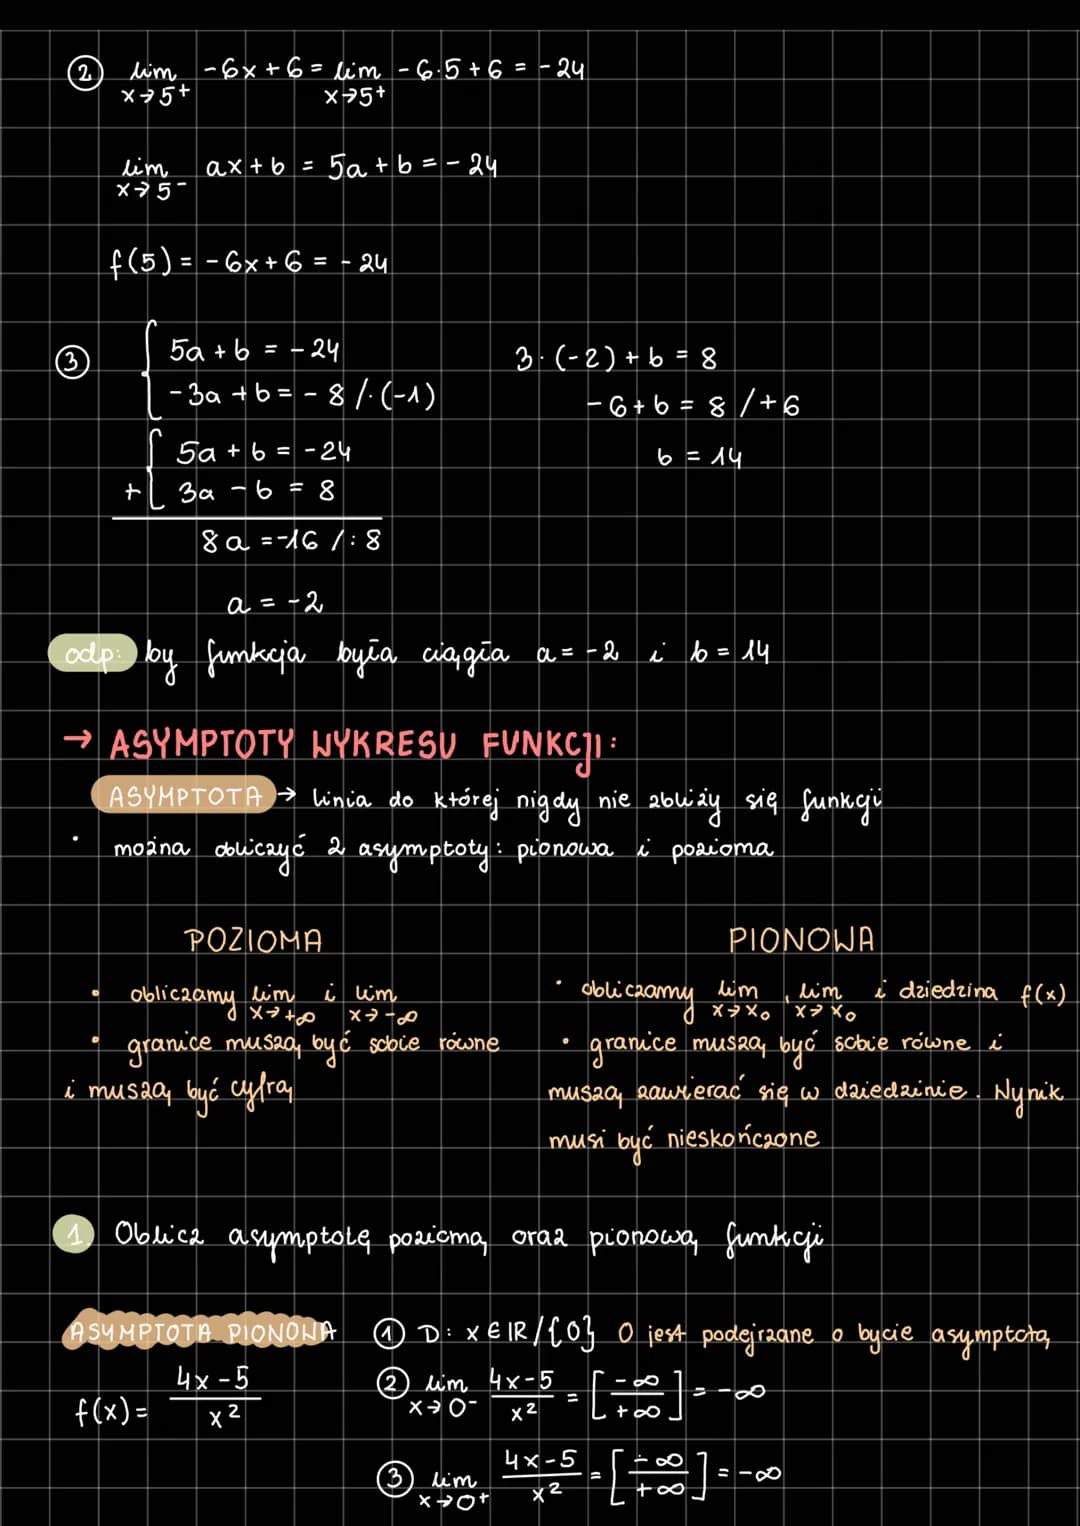 ② lim x→5⁺ -6x+6 = lim x→5⁺ -6·5+6 = -24
lim x→5⁻ ax+b = 5a+b = -24
f(5) = -6x+6 = -24
③ { 5a+b = -24
-3a+b = -8 /·(-1)
{ 5a+b = -24
+ 3a-b = 8
8a = -16 /:8
a = -2
3·(-2)+b = 8
-6+b = 8 /+6
b = 14
odp: by funkcja była ciągła a = -2 i b = 14
→ ASYMPTOTY WYKRESU FUNKCJI:
ASYMPTOTA → linia do której nigdy nie zbliży się funkcji
· można obliczyć 2 asymptoty: pionowa i pozioma
POZIOMA
• obliczamy lim x→+∞ i lim x→-∞
• granice muszą być sobie równe
i muszą być cyfrą
PIONOWA
• obliczamy lim x→x₀, lim x→x₀ i dziedzina f(x)
• granice muszą być sobie równe i
muszą zawierać się w dziedzinie. Wynik
musi być nieskończone
1. Oblicz asymptotę poziomą oraz pionową funkcji
ASYMPTOTA PIONOWA
f(x) = 4x-5 / x²
① D: x∈IR/{0} 0 jest podejrzane o bycie asymptotą
② lim x→0⁻ 4x-5 / x² = [-∞ / +∞] = -∞
③ lim x→0⁺ 4x-5 / x² = [-∞ / +∞] = -∞